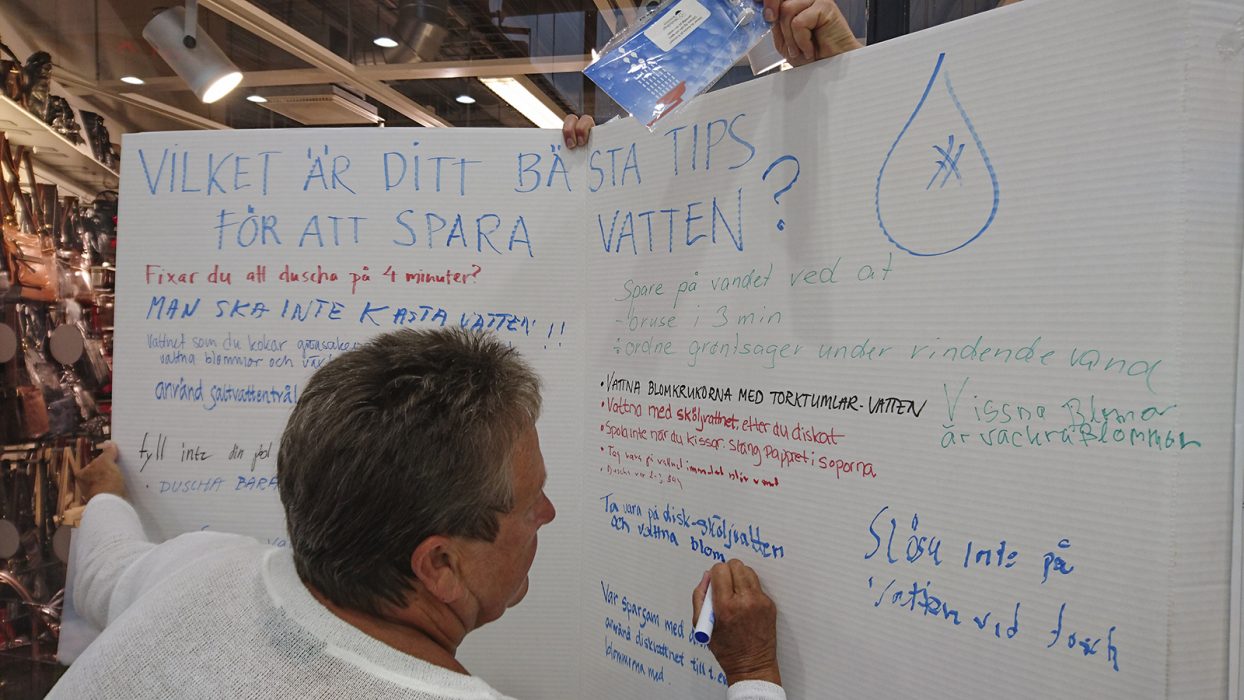 VILKET ÄR DITT BÄSTA TIPS
FÖR ATT SPARA VATTEN?
Fixar du att duscha på 4 minuter?
MAN SKA INTE KASTA VATTEN!!!
Vattnet som du kokar grönsaker
vattna blommor och
använd saltvattentvål
fyll inte din
• DUSCHA BARA
Spare på vandet ved at
-bruse i 3 min
÷ordne grøntsager under rindende vand
• VATTNA BLOMKRUKORNA MED TORKTUMLAR-VATTEN
• Vattna med sköljvattnet, efter du diskat
• Spola inte när du kissar. släng pappret i soporna
• Tag vara på vattnet
• Duscha var
Vissna Blomor
är vackra Blommor
Ta vara på disk-sköljvatten
och vattna blom
Var sparsam med
använd diskvattnet till t.ex
blommorna med.
Slösa inte på
vatten vid